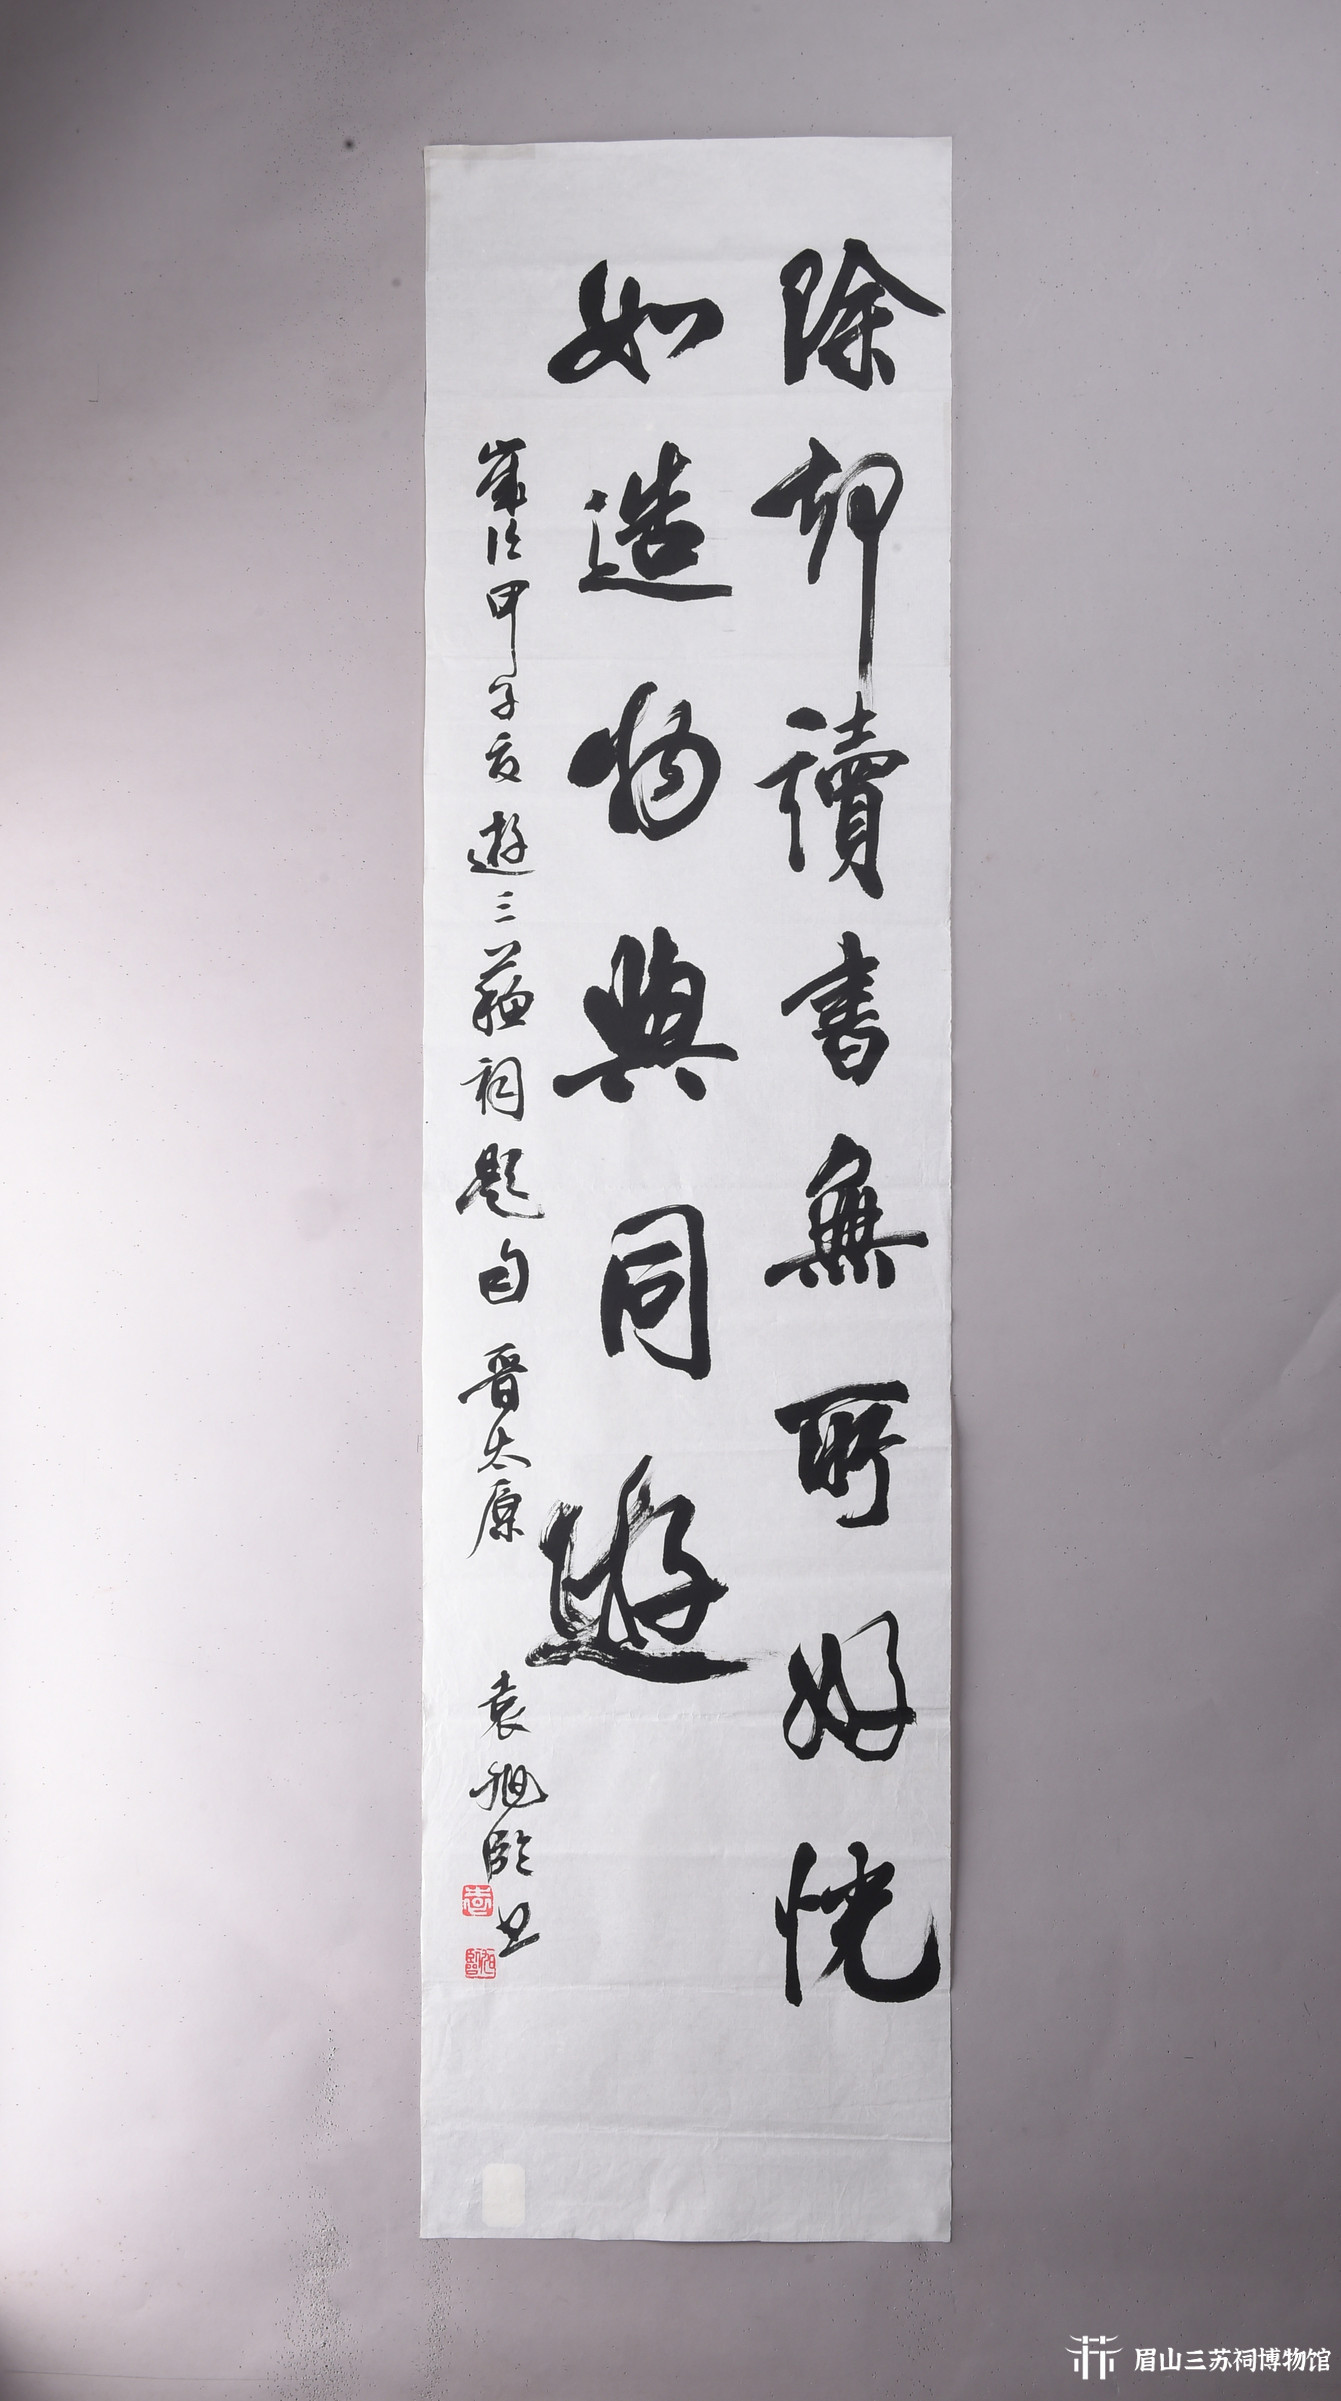 除却讀書無所好恍
如造物與同遊
歲次甲子夏遊三蘇祠題句晉太原
袁旭臨書
眉山三苏祠博物馆